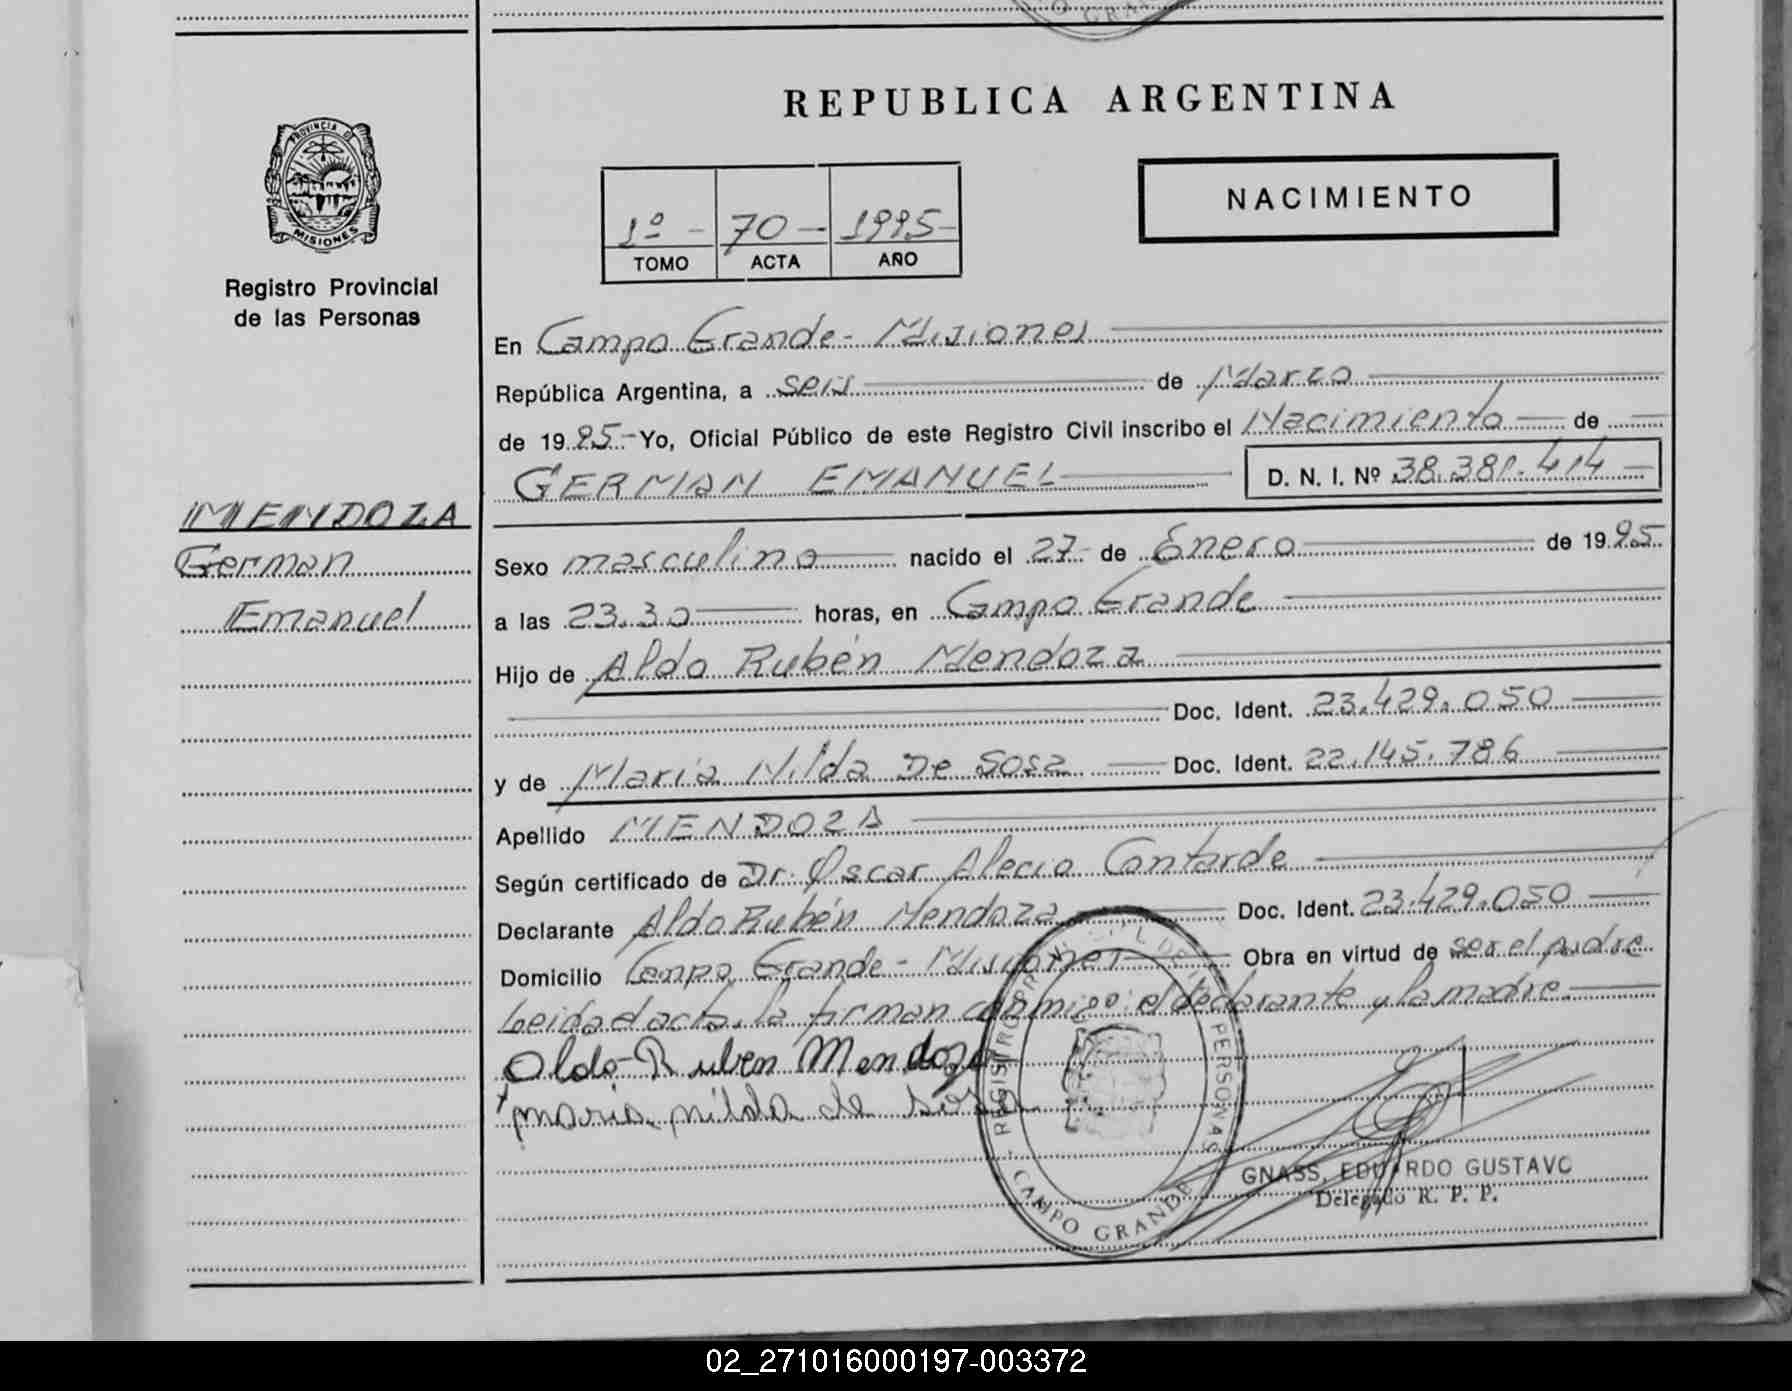 GRAN
REPUBLICA ARGENTINA
PROVINCIA D
MISIONES
Registro Provincial
de las Personas
1º - 70 - 1995-
TOMO ACTA AÑO
NACIMIENTO
En Campo Grande - Misiones
República Argentina, a seis de Marzo
de 1995- Yo, Oficial Público de este Registro Civil inscribo el Nacimiento de
GERMAN EMANUEL D. N. I. Nº 38.381.414
MENDOZA
German
Emanuel
Sexo masculino nacido el 27 de Enero de 1995
a las 23.30 horas, en Campo Grande
Hijo de Aldo Rubén Mendoza
Doc. Ident. 23.429.050
y de María Nilda De Sosa Doc. Ident. 22.145.786
Apellido MENDOZA
Según certificado de Dr. Oscar Alecio Contarde
Declarante Aldo Rubén Mendoza Doc. Ident. 23.429.050
Domicilio Campo Grande - Misiones Obra en virtud de ser el padre
Leida el acta, la firman conmigo: el declarante y la madre.
Aldo Ruben Mendoza
maria nilda de sosa
REGISTRO PROVINCIAL DE LAS PERSONAS
- CAMPO GRANDE -
GNASS, EDUARDO GUSTAVO
Delegado R. P. P.
02_271016000197-003372